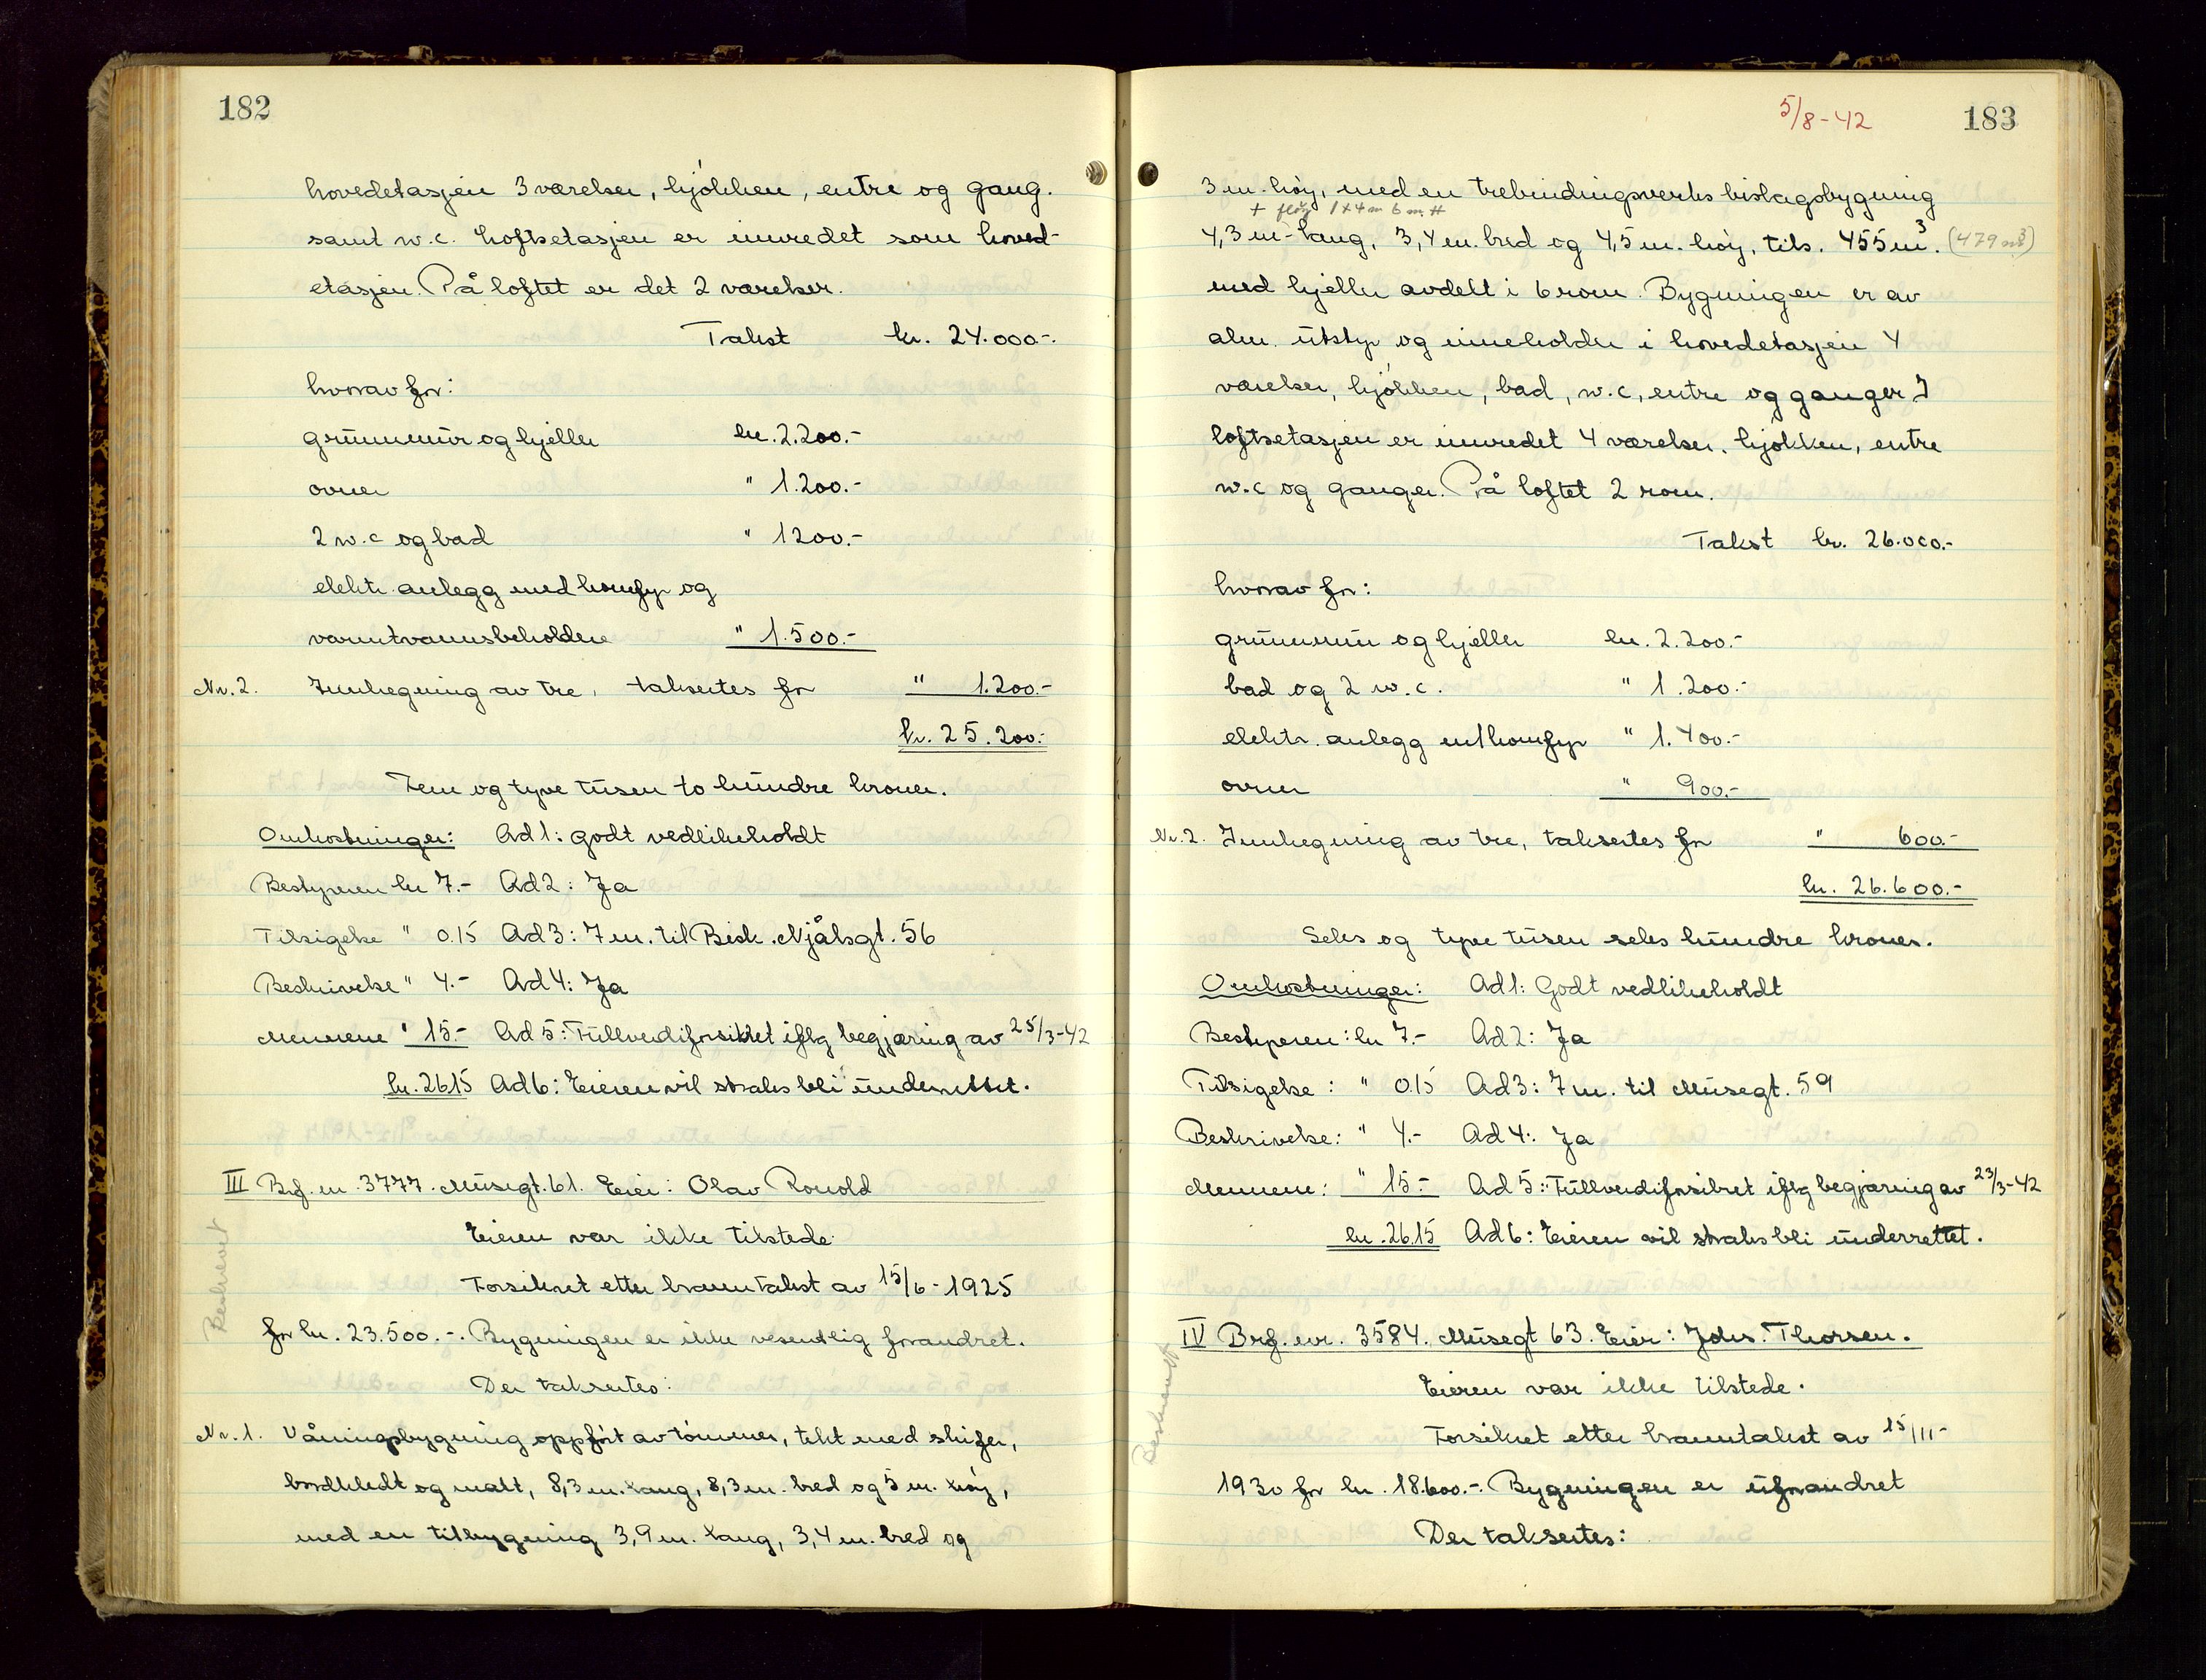 182
hovedetasjen 3 værelser, kjökken, entre og gang.
samt w.c. Loftsetasjen er innredet som hoved-
etasjen. På loftet er det 2 værelser.
Takst kr. 24.000.-.
hvorav for:
grunnmur og kjeller kr. 2.200.-
ovner " 1.200.-
2 w.c og bad " 1200.-
elektr. anlegg med komfyr og
varmtvannsbeholdere " 1.500.-
Nr. 2. Innhegning av tre, takseres for " 1.200.-
kr. 25.200.-
Fem og tyve tusen to hundre kroner.
Omkostninger: Ad 1: godt vedlikeholdt
Bestyreren kr 7.- Ad 2: Ja
Tilsigelse " 0.15 Ad 3: 7 m. til Bisk. Njålsgt. 56
Beskrivelse " 4.- Ad 4: Ja
Mennene " 15.- Ad 5: Fullverdiforsikret iflg begjæring av 25/3-42
kr. 26.15 Ad 6: Eieren vil straks bli underrettet.
III Brf. nr. 3777. Musegt. 61. Eier: Olav Rovold
Eieren var ikke tilstede
Forsikret etter branntakst av 15/6-1925
for kr. 23.500.-. Bygningen er ikke vesentlig forandret.
Beskrevet
Der takseres:
Nr. 1. Våningsbygning oppfört av tömmer, tekt med skifer,
bordkledt og malt, 8,3 m. lang, 8,3 m. bred og 5 m. höy,
med en tilbygning 3,9 m. lang, 3,4 m. bred og
5/8-42 183
3 m. höy, med en trebindingsverks bislagsbygning
+ flöy 1 x 4 m 6 m #
4,3 m. lang, 3,4 m. bred og 4,5 m. höy, tils. 455 m³. (479 m³)
med kjeller avdelt i 6 rom. Bygningen er av
alm. utstyr og inneholder i hovedetasjen 4
værelser, kjökken, bad, w.c, entre og ganger I
loftsetasjen er innredet 4 værelser, kjökken, entre
w.c og ganger. På loftet 2 rom.
Takst kr. 26.000.-
hvorav for:
grunnmur og kjeller kr. 2.200.-
bad og 2 w.c. " 1.200.-
elektr. anlegg m/komfyr " 1.400.-
ovner " 900.-
Nr. 2. Innhegning av tre, takseres for " 600.-
kr. 26.600.-
Seks og tyve tusen seks hundre kroner.
Omkostninger: Ad 1: Godt vedlikeholdt
Bestyreren: kr 7.- Ad 2: Ja
Tilsigelse: " 0.15 Ad 3: 7 m. til Musegt. 59
Beskrivelse: " 4.- Ad 4: Ja
Mennene: " 15.- Ad 5: Fullverdiforsikret iflg begjæring av 23/3-42
kr. 26.15 Ad 6: Eieren vil straks bli underrettet.
IV Brf. nr. 3584. Musegt 63. Eier: Johs. Thorsen.
Eieren var ikke tilstede.
Beskrevet
Forsikret etter branntakst av 15/11-
1930 for kr. 18.600.-. Bygningen er uforandret
Der takseres: